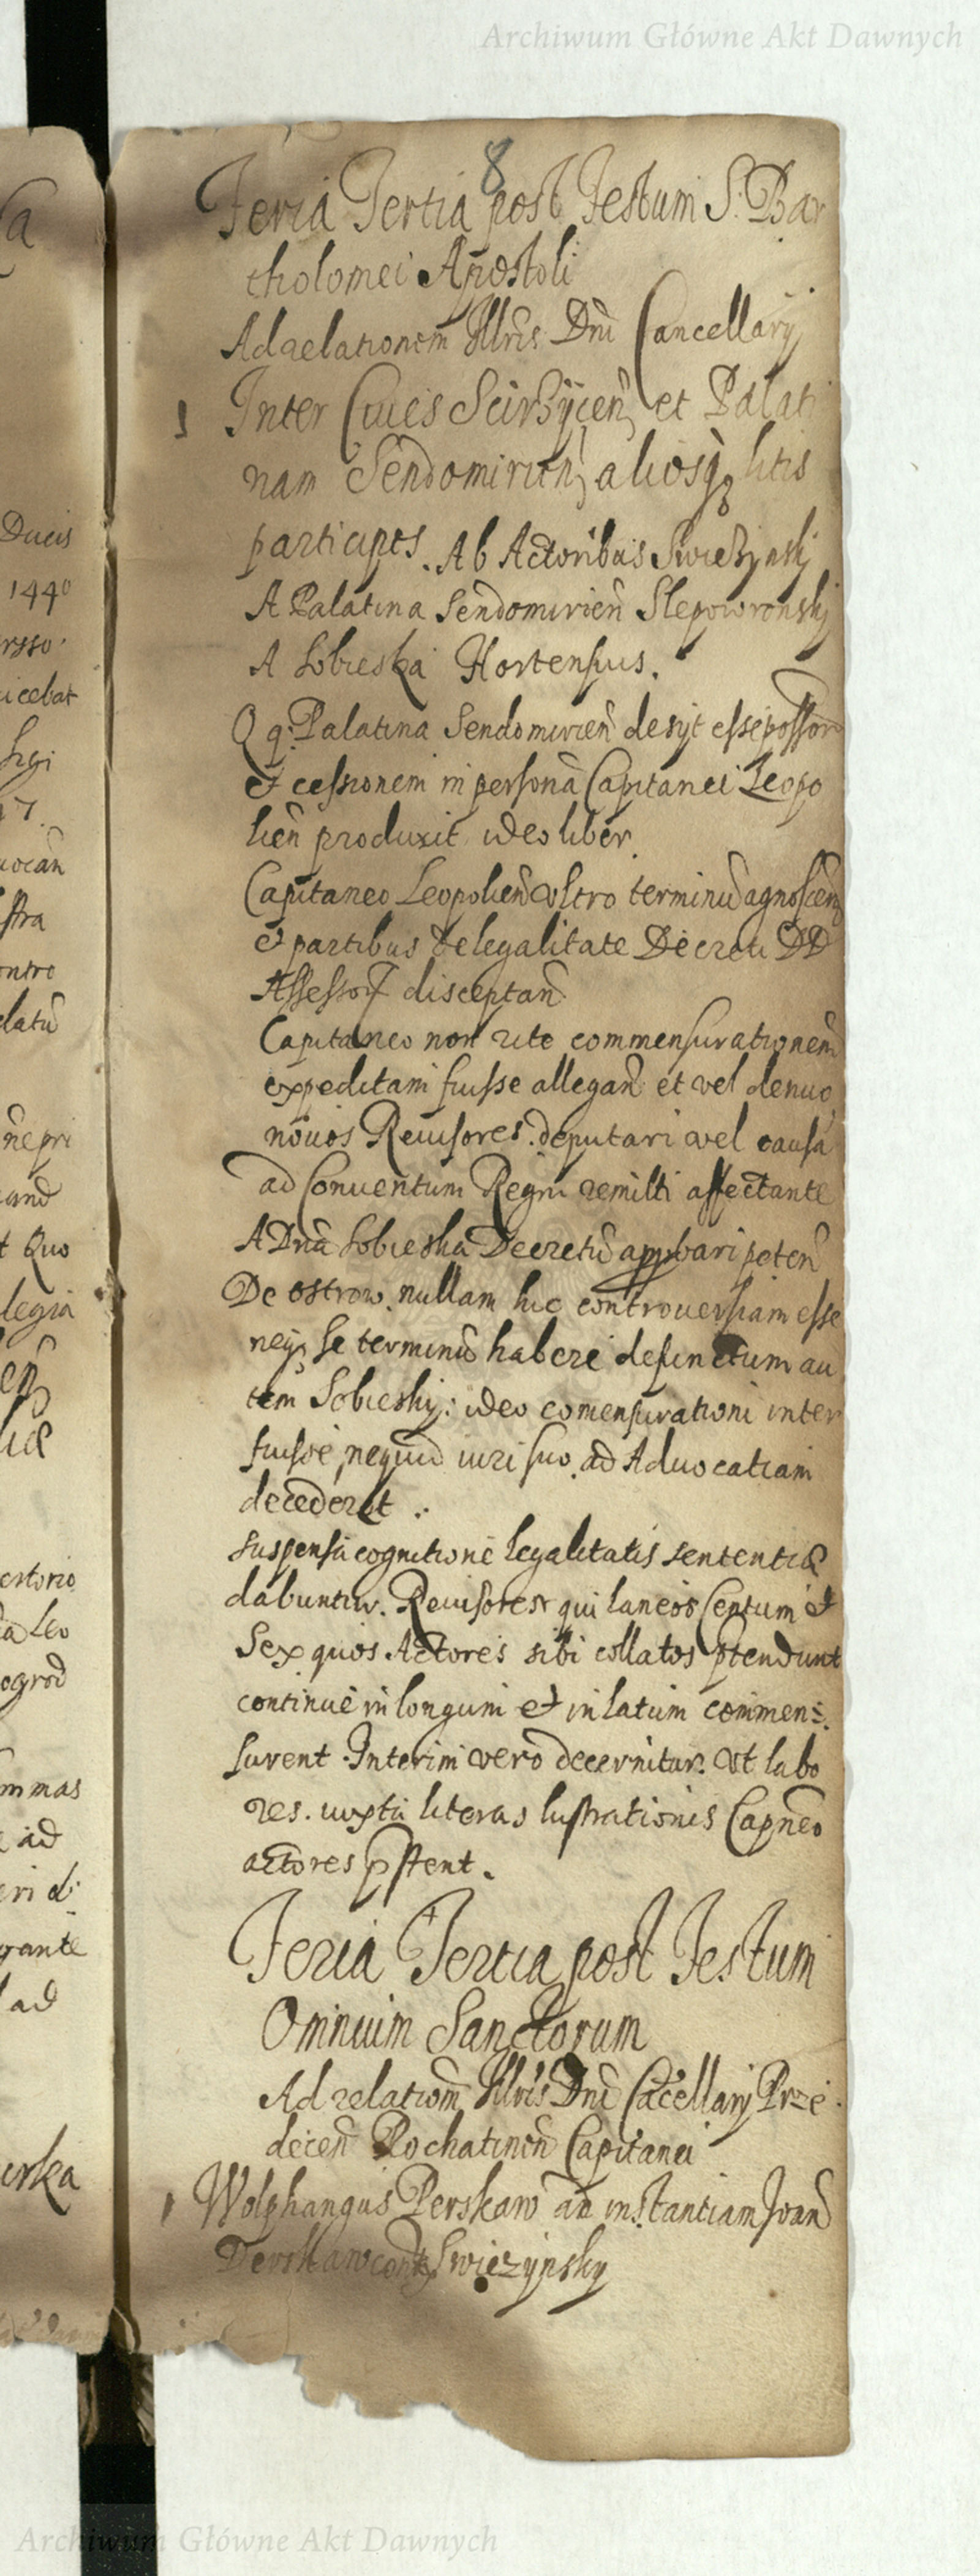 Archiwum Główne Akt Dawnych
8
Feria Tertia post Festum S. Bar
tholomei Apostoli
Ad relationem Illris Dni Cancellarij
Inter Cives Scirzÿcen et Palati
nam Sendomirien aliosq litis
participes. Ab Actoribus Swiezÿnskj
A Palatina Sendomirien Slepowronskj
A Sobieska Hortensius.
Q q Palatina Sendomirien desijt esse possor
et cessionem in persona Capitanei Leopo
lien produxit ideo liber.
Capitaneo Leopolien ultro terminu agnoscen
et partibus de legalitate Decreti DD
Assessor disceptan
Capitaneo non rite commensurationem
expeditam fuisse allegan et vel denuo
novos Revisores deputari vel causa
ad Conventum Regni remitti affectante
A Dna Sobieska Decretu approbari peten
De ostrow. nullam hic controversiam esse
neq se terminu habere defunctum au
tem Sobieskj: ideo comensurationi inter
fuisse, nequid iuri suo ad Advocatiam
decederet.
Suspensa cognitione legalitatis sententiæ
dabuntur. Revisores qui laneos Centum et
Sex quos Actores sibi collatos ptendunt
continue in longum et in latum commen=
surent. Interim vero decernitur. Ut labo
res. iuxta literas lustrationis Capneo
actores pstent.
Feria Tertia post Festum
Omnium Sanctorum
Ad relatiom Illris Dni Cacellarij Prze
decen Rochatinen Capitanei
Wolphangus Derskaw ad instantiam Joan
Derskaw Swiezÿnsky
Ducis
1440
icebat
ocan
stra
ontro
latu
t Quo
legia
estorio
a Leo
ogrod
mmas
ad
eri di
gante
ad
erka
Archiwum Główne Akt Dawnych